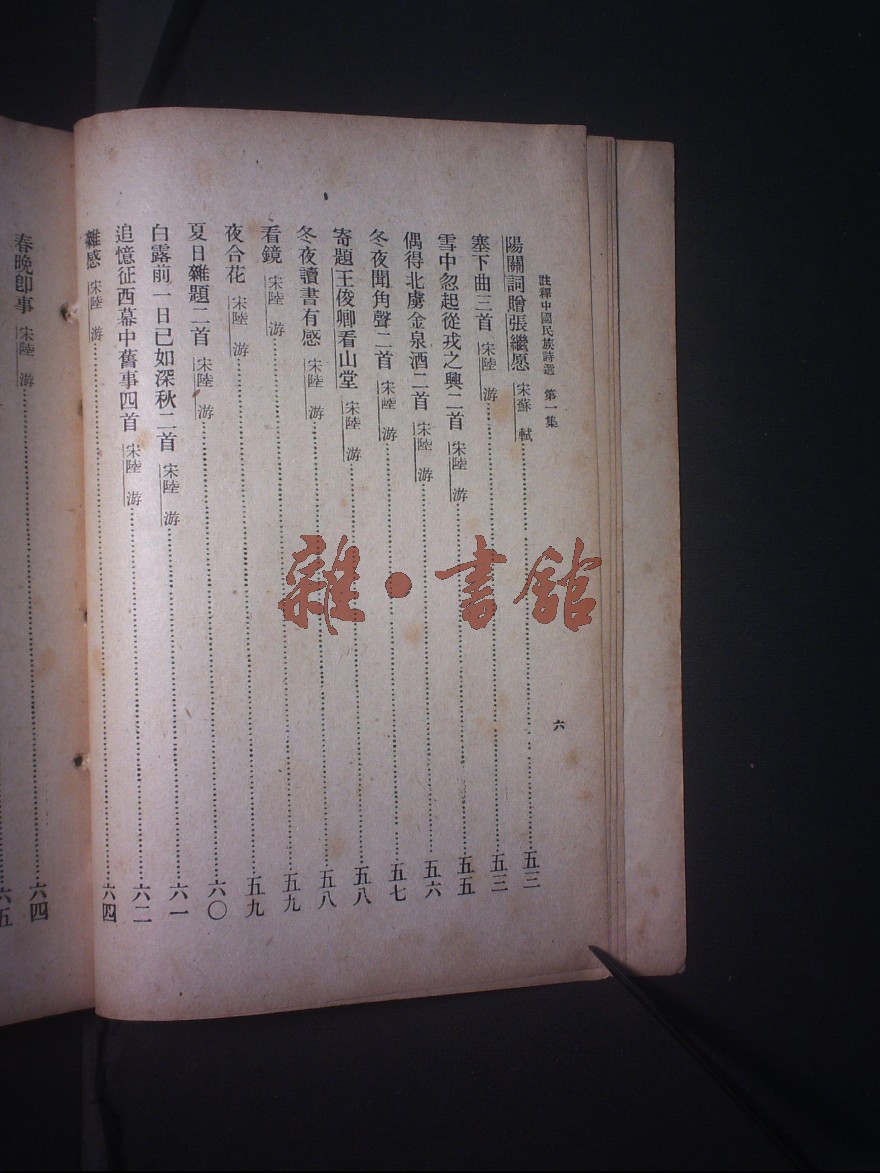 註釋中國民族詩選 第一集
六
陽關詞贈張繼愿 宋蘇 軾……五三
塞下曲三首 宋陸 游……五三
雪中忽起從戎之興二首 宋陸 游……五五
偶得北虜金泉酒二首 宋陸 游……五六
冬夜聞角聲二首 宋陸 游……五七
寄題王俊卿看山堂 宋陸 游……五八
冬夜讀書有感 宋陸 游……五八
看鏡 宋陸 游……五九
夜合花 宋陸 游……五九
夏日雜題二首 宋陸 游……六〇
白露前一日已如深秋二首 宋陸 游……六一
追憶征西幕中舊事四首 宋陸 游……六二
雜感 宋陸 游……六四
春晚卽事 宋陸 游……六四
六五
雜·書館